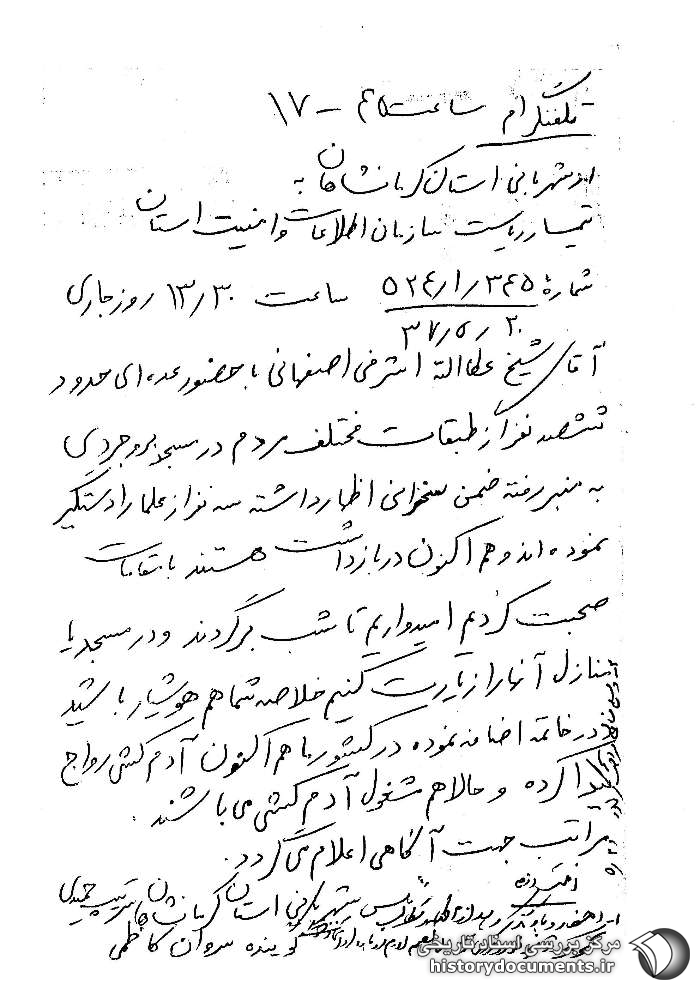 تلفنگرام ساعت ۴۵ - ۱۷
از شهربانی استان کرمانشاهان به
تیمسار ریاست سازمان اطلاعات و امنیت استان
شمارهٔ ۵۲۴/۱/۳۴۵ ساعت ۱۳/۳۰ روز جاری
۳۷/۵/۲۰
آقای شیخ عطااله اشرفی اصفهانی با حضور عده‌ای حدود
ششصد نفر از طبقات مختلف مردم در مسجد بروجردی
به منبر رفته ضمن سخنرانی اظهار داشته سه نفر از علما را دستگیر
نموده‌اند و هم اکنون در بازداشت هستند با مقامات
صحبت کردیم امیدواریم تا شب برگردند و در مسجد یا
منازل آنها را زیارت کنیم خلاصه شما هم هوشیار باشید
در خاتمه اضافه نموده در کشور ما هم اکنون آدم کشی رواج
پیدا کرده و حالا هم مشغول آدم کشی می باشند.
مراتب جهت آگاهی اعلام می گردد.
رئیس شهربانی استان کرمانشاهان سرتیپ
گوینده سروان کاظمی
مرکز بررسی اسناد تاریخی
historydocuments.ir